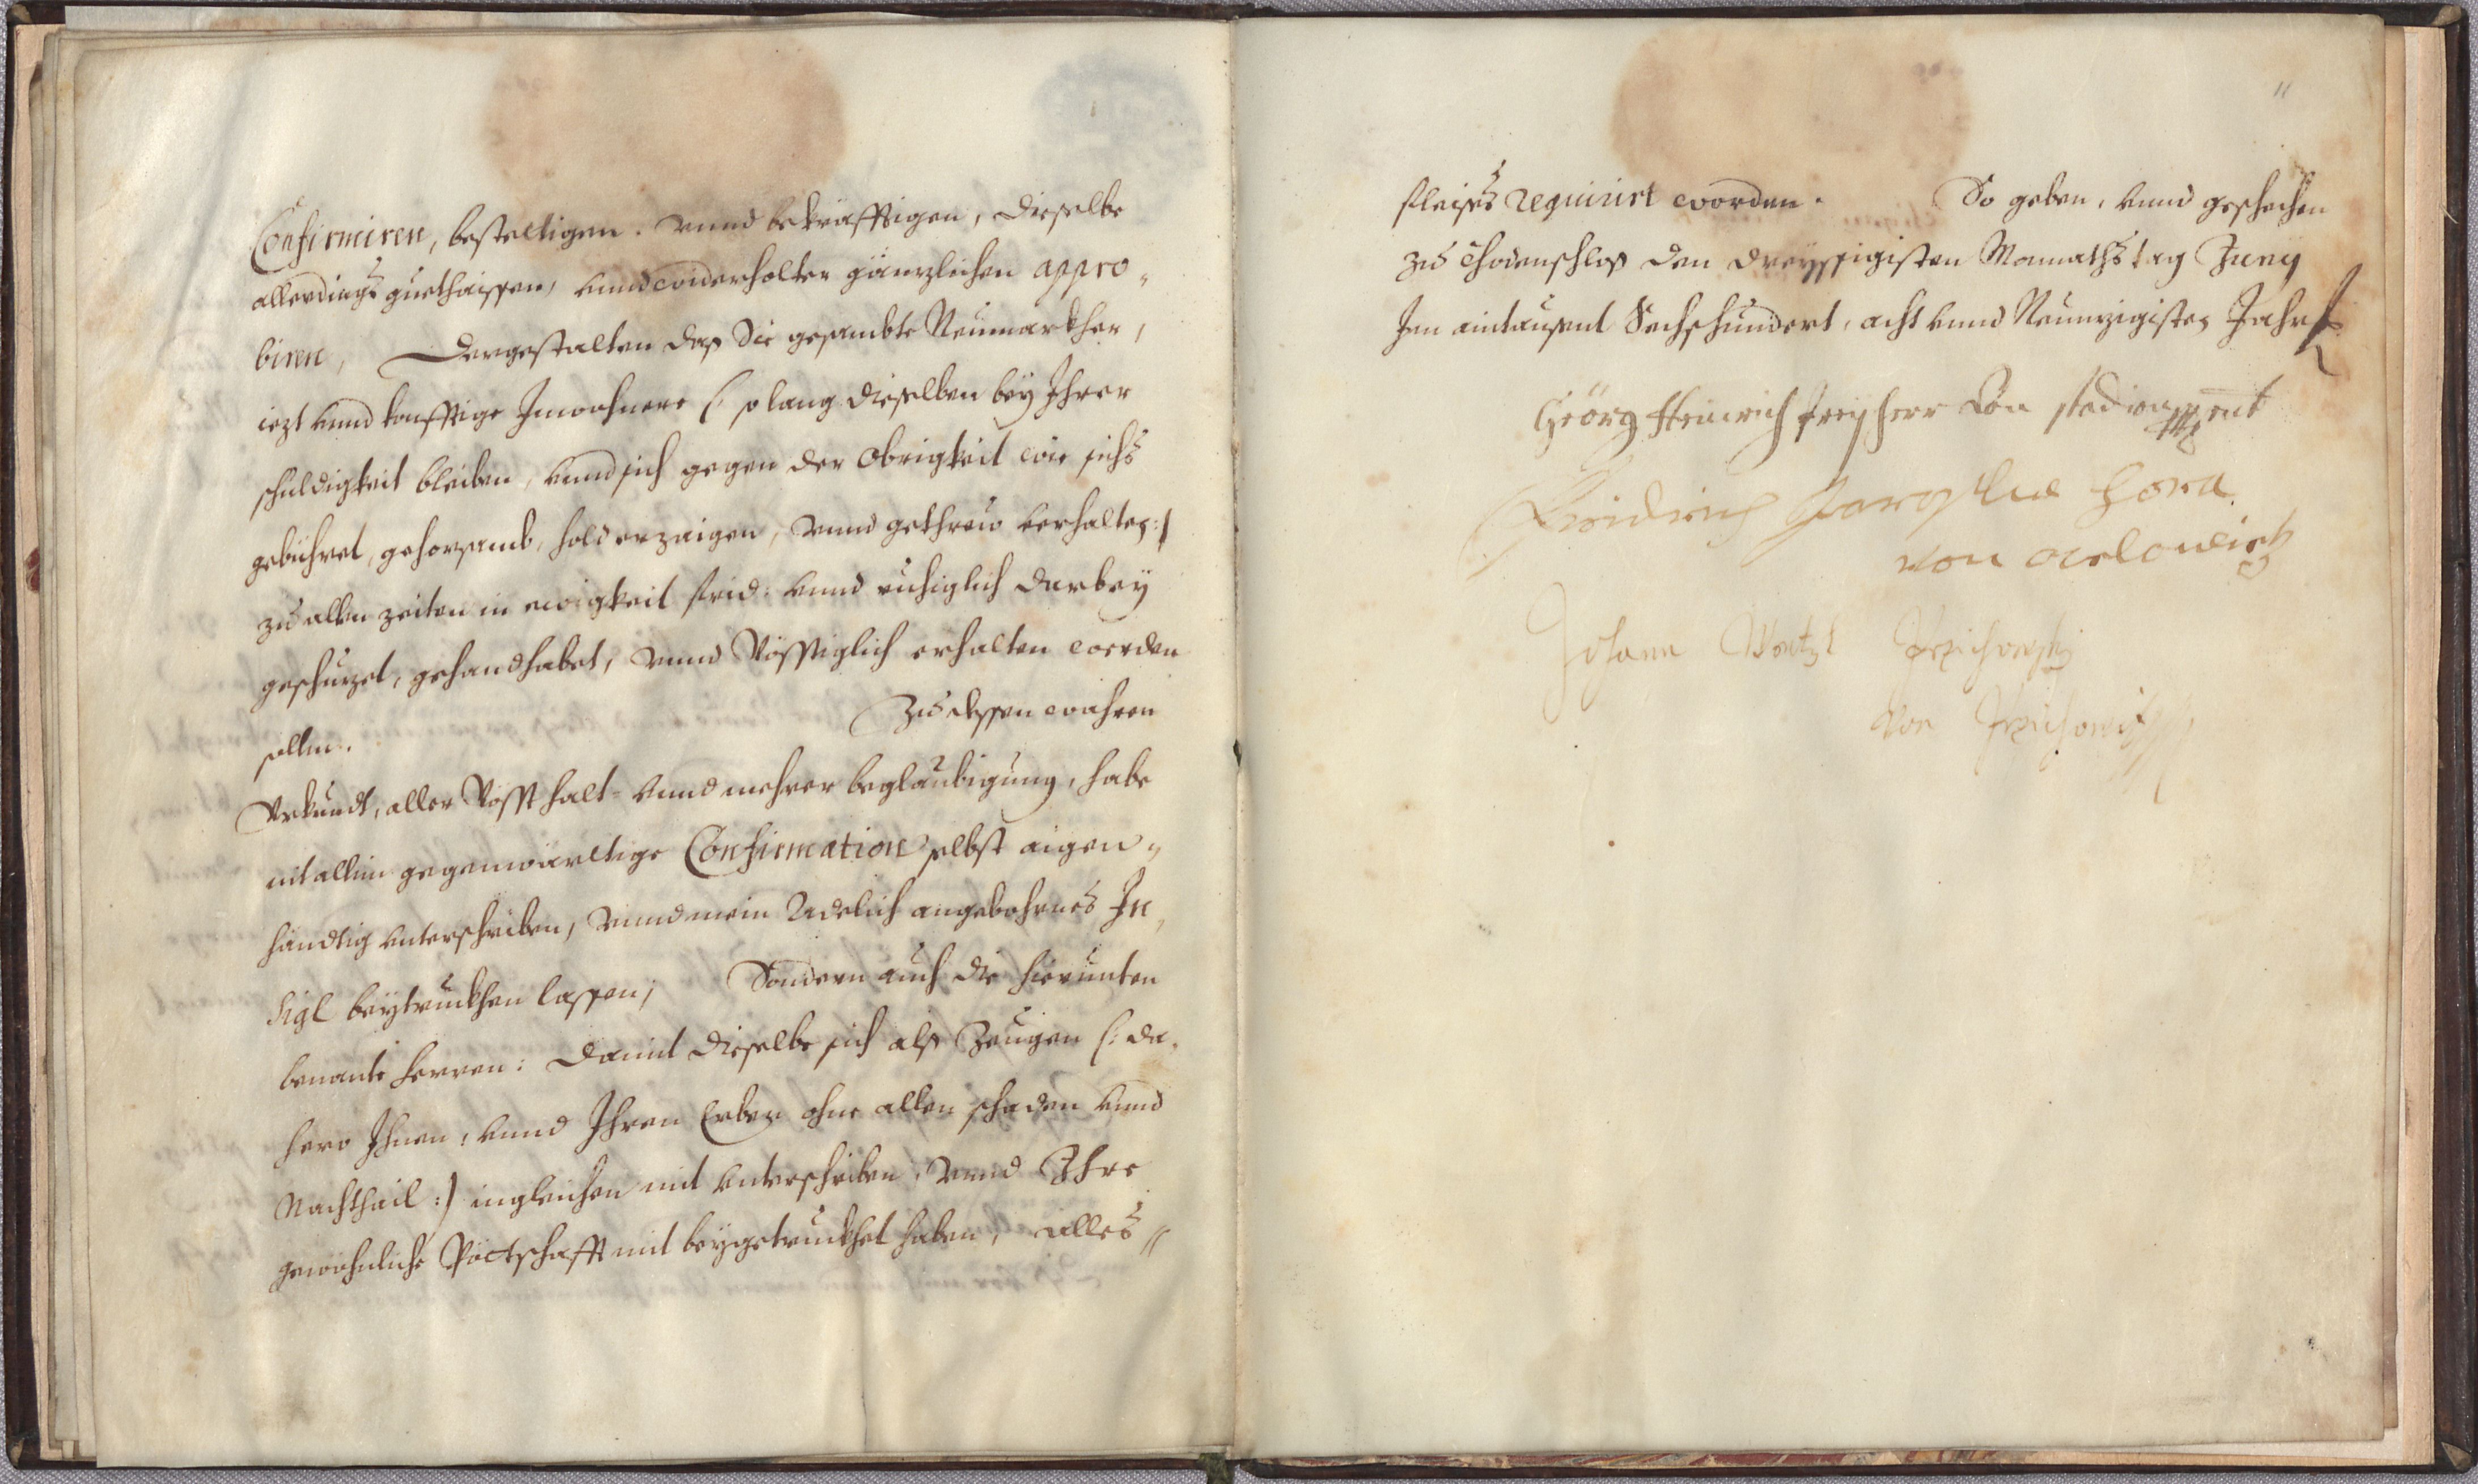 Confirmiren, bestettigen. vnnd bekräfftigen, dieselbe
allerdings guethaissen, vnnd widerholter gäntzlichen appro„
biren, Dergestalten das Sie gesambte Neumarkher,
iezt vnnd konfftige Innwohnere (: so lang dieselben bey Ihrer
schuldigkeit bleiben, vnnd sich gegen der Obrigkeit wie sichs
gebühret, gehorsamb, hold erzaigen, vnnd gethrew verhalten :)
zu allen zeiten in ewigkeit frid- vnnd ruhiglich darbey
geschüzet, gehandhabet, vnnd Vösstiglich erhalten werden
sollen. Zu dessen wahren
Vrkundt, aller Vösst halt- vnnd mehrer beglaubigung, habe
nit allein gegenwärttige Confirmation selbst aigen„
händtig vnterschriben, vnnd mein Adelich angebohrnes In„
sigl beytruckhen lassen; Sondern auch die hierunten
benante herren: damit dieselbe sich alss Zeugen (: da„
hero Ihnen, vnnd Ihren Erben ohne allen schaden vnnd
Nachthail :) ingleichen mit vnterschriben, vnnd Ihre
gewohnliche Pöctschafft mit beygetruckhet haben, alles„
11
fleises requirirt worden. So geben, vnnd geschechen
zu Chodenschloss den dreyssigisten Monnathstag Juny
Im aintausent Sechshundert, acht vnnd Neunzigisten Jahr
Geörg Heinrich Freyherr Von Stadion
Friedrich Jaroslav Hora
von Ocelowicz
Johann Wentzl
Von